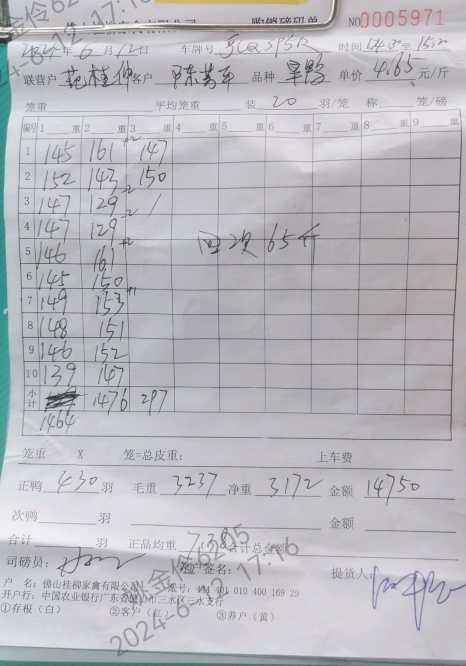 购销磅码单 NO 0005971
2024年6月12日 车牌号 时间
联营户 客户 品种 单价 4.65 元/斤
笼重 平均笼重 装 20 羽/笼 称 笼/磅
编号 1 重 2 重 3 重 4 重 5 重 6 重 7 重 8 重 9 重
1 145 161 +2 147
2 152 143 150
3 147 129 -2 /
4 147 129 -2
5 146 161 +2
6 145 150
7 149 153 +1
8 148 151
9 146 152
10 139 147
小计 1476 297
1464
回次 65斤
笼重 X 笼=总皮重: 上车费
正鸭 430 羽 毛重 3237 净重 3172 金额 14750
次鸭 羽 金额
合计 羽 正品均重 7.38 合计总金额
司磅员: 客户签名: 提货人:
户 名: 佛山桂柳家禽有限公司
开户行: 中国农业银行广东省佛山市三水区三水支行
①存根(白) ②客户(红) ③养户(黄)
2024-6-12 17:16